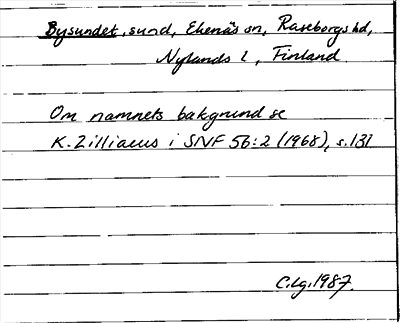 Bysundet, sund, Ekenäs sn, Raseborgs hd,
Nylands l, Finland
Om namnets bakgrund se
K. Zilliacus i SNF 56:2 (1968), s. 131
C. Lg. 1987.